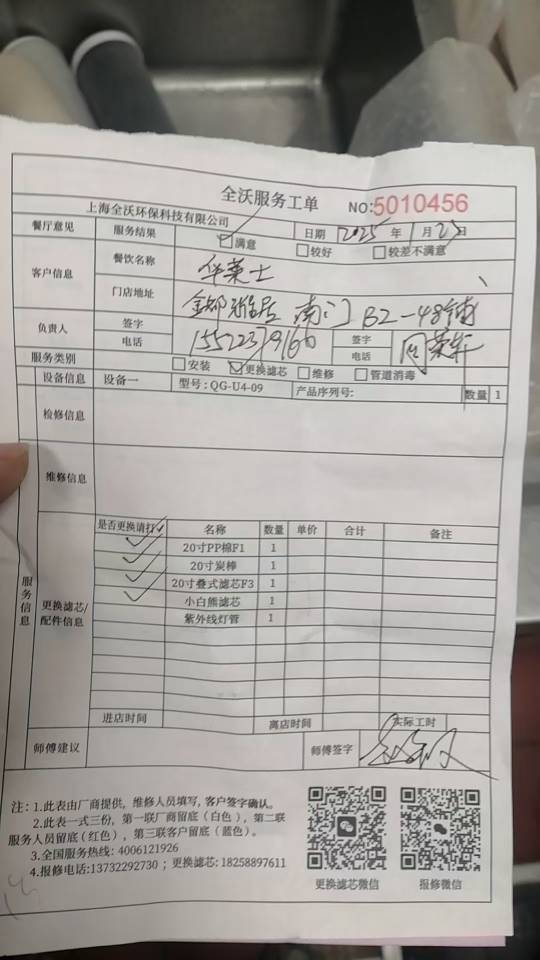 全沃服务工单 NO:5010456
上海全沃环保科技有限公司
餐厅意见 服务结果 ☑满意 日期 2025年1月23日 □较好 □较差不满意
客户信息 餐饮名称 华莱士
门店地址 金都雅居 南门 B2-48铺
负责人 签字 签字
电话 15522379160 电话
服务类别 □安装 ☑更换滤芯 □维修 □管道消毒
设备信息 设备一 型号:QG-U4-09 产品序列号: 数量 1
检修信息
维修信息
服务信息
更换滤芯/配件信息
是否更换请打✓ 名称 数量 单价 合计 备注
✓ 20寸PP棉F1 1
✓ 20寸炭棒 1
✓ 20寸叠式滤芯F3 1
✓ 小白熊滤芯 1
紫外线灯管 1
进店时间 离店时间 实际工时
师傅建议 师傅签字
注:1.此表由厂商提供,维修人员填写,客户签字确认。
2.此表一式三份,第一联厂商留底(白色),第二联
服务人员留底(红色),第三联客户留底(蓝色)。
3.全国服务热线:4006121926
4.报修电话:13732292730;更换滤芯:18258897611
更换滤芯微信 报修微信